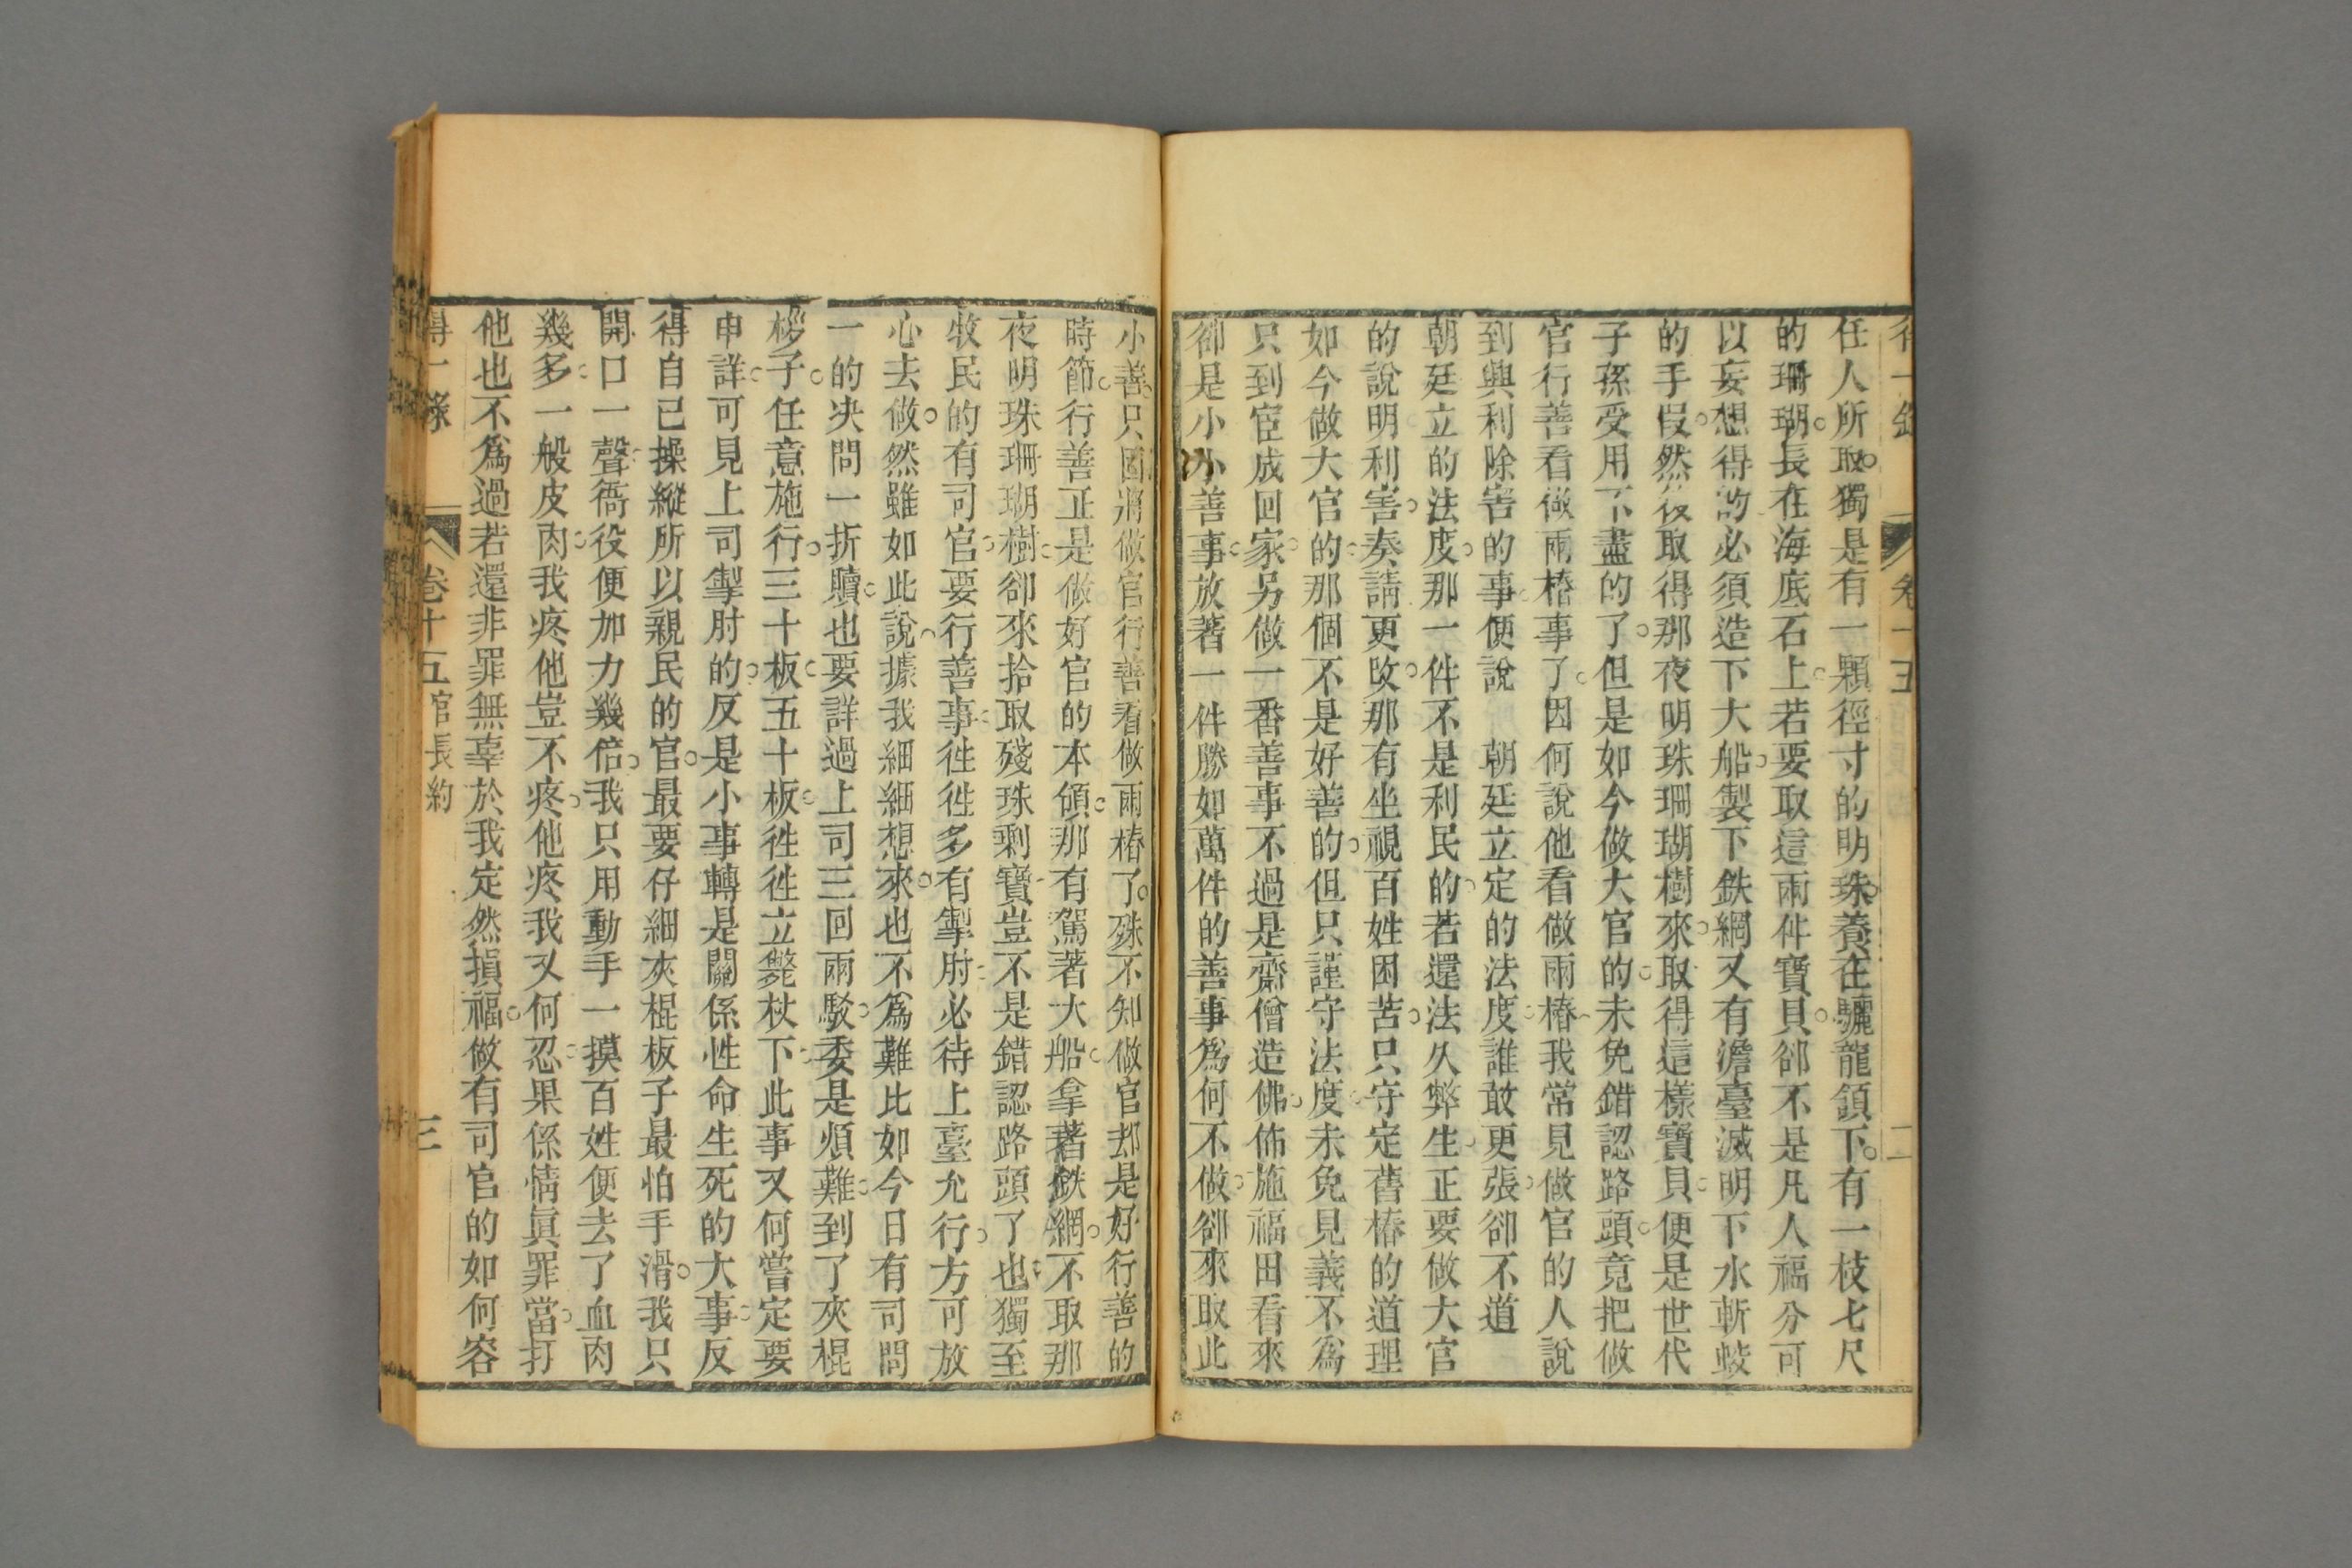 得一錄 卷十五 二
任人所取。獨是有一顆徑寸的明珠。養在驪龍頷下。有一枝七尺
的珊瑚。長在海底石上。若要取這兩件寶貝。卻不是凡人福分可
以妄想得的必須造下大船。製下鉄網又有澹臺滅明下水斬蛟
的手叚。然後取得那夜明珠珊瑚樹來。取得這樣寶貝。便是世代
子孫受用不盡的了。但是如今做大官的。未免錯認路頭。竟把做
官行善看做兩樁事了。因何說他看做兩樁。我常見做官的人說
到興利除害的事。便說　朝廷立定的法度。誰敢更張。卻不道
朝廷立的法度。那一件不是利民的。若還法久弊生。正要做大官
的說明利害。奏請更改。那有坐視百姓困苦。只守定舊樁的道理
如今做大官的。那個不是好善的。但只謹守法度。未免見義不爲
只到宦成回家。另做一番善事不過是齋僧造佛。佈施福田看來
卻是小小善事。放著一件勝如萬件的善事爲何不做。卻來取此
小善。只因將做官行善看做兩樁了。殊不知做官却是好行善的
時節。行善正是做好官的本領。那有駕著大船。拿著鉄網。不取那
夜明珠珊瑚樹。卻來拾取殘珠剩寶。豈不是錯認路頭了也。獨至
牧民的有司官。要行善事。徃徃多有掣肘。必待上臺允行。方可放
心去做。然雖如此說。據我細細想來。也不爲難比如今日有司問
一的决問一折贖。也要詳過上司三回兩駁。委是煩難。到了夾棍
桚子。任意施行。三十板。五十板。徃徃立斃杖下。此事又何嘗定要
申詳。可見上司掣肘的。反是小事轉是關係性命生死的大事。反
得自已操縱所以親民的官。最要仔細夾棍板子最怕手滑。我只
開口一聲。衙役便加力幾倍。我只用動手一摸百姓便去了血肉
幾多。一般皮肉。我疼他豈不疼。他疼我又何忍。果係情眞罪當。打
他也不爲過若還非罪無辜於我定然損福。做有司官的如何容
得一錄 卷十五 官長約 三